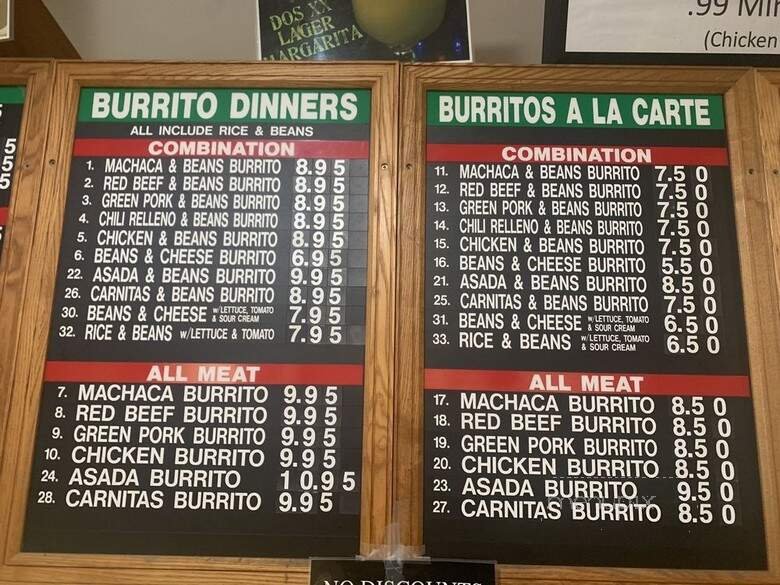 DOS XX
LAGER
MARGARITA
.99
(Chicken
5
5
5
BURRITO DINNERS
ALL INCLUDE RICE & BEANS
COMBINATION
1. MACHACA & BEANS BURRITO 8.95
2. RED BEEF & BEANS BURRITO 8.95
3. GREEN PORK & BEANS BURRITO 8.95
4. CHILI RELLENO & BEANS BURRITO 8.95
5. CHICKEN & BEANS BURRITO 8.95
6. BEANS & CHEESE BURRITO 6.95
22. ASADA & BEANS BURRITO 9.95
26. CARNITAS & BEANS BURRITO 8.95
30. BEANS & CHEESE W/LETTUCE, TOMATO & SOUR CREAM 7.95
32. RICE & BEANS W/LETTUCE & TOMATO 7.95
ALL MEAT
7. MACHACA BURRITO 9.95
8. RED BEEF BURRITO 9.95
9. GREEN PORK BURRITO 9.95
10. CHICKEN BURRITO 9.95
24. ASADA BURRITO 10.95
28. CARNITAS BURRITO 9.95
BURRITOS A LA CARTE
COMBINATION
11. MACHACA & BEANS BURRITO 7.50
12. RED BEEF & BEANS BURRITO 7.50
13. GREEN PORK & BEANS BURRITO 7.50
14. CHILI RELLENO & BEANS BURRITO 7.50
15. CHICKEN & BEANS BURRITO 7.50
16. BEANS & CHEESE BURRITO 5.50
21. ASADA & BEANS BURRITO 8.50
25. CARNITAS & BEANS BURRITO 7.50
31. BEANS & CHEESE W/LETTUCE, TOMATO & SOUR CREAM 6.50
33. RICE & BEANS W/LETTUCE, TOMATO & SOUR CREAM 6.50
ALL MEAT
17. MACHACA BURRITO 8.50
18. RED BEEF BURRITO 8.50
19. GREEN PORK BURRITO 8.50
20. CHICKEN BURRITO 8.50
23. ASADA BURRITO 9.50
27. CARNITAS BURRITO 8.50
NO DISCOUNTS